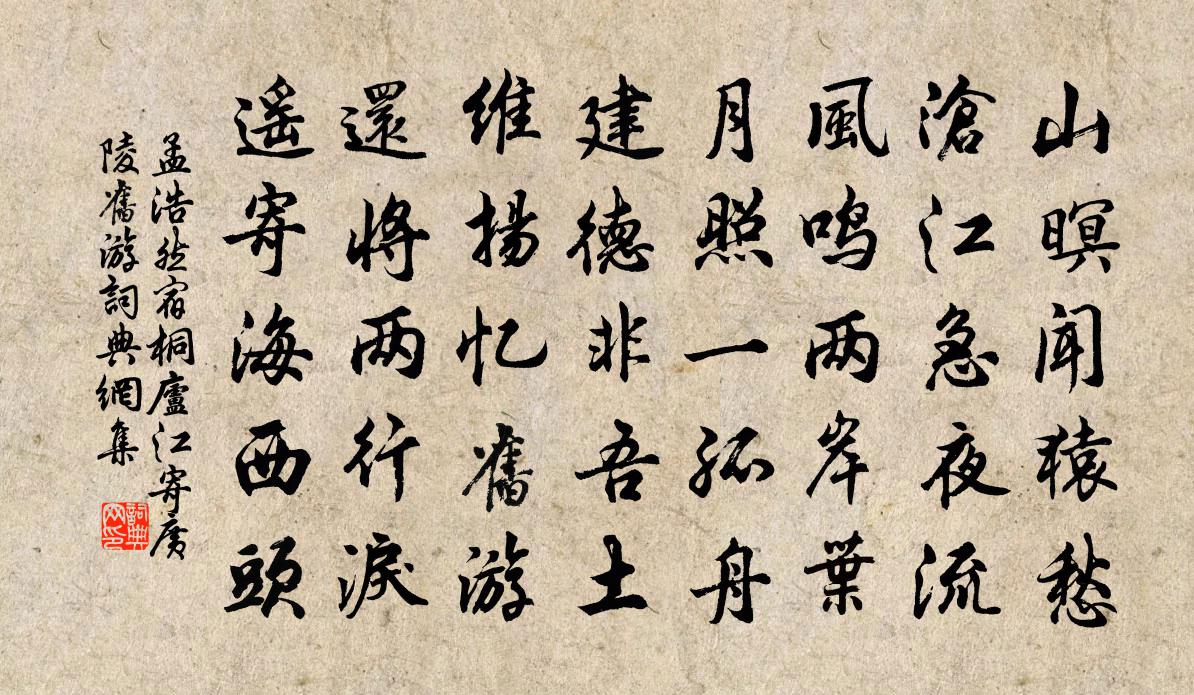 山暝闻猿愁
滄江急夜流
風鸣两岸葉
月照一孤舟
建德非吾土
維揚忆舊游
還将两行淚
遥寄海西頭
孟浩然宿桐廬江寄廣
陵舊游詞典網集
詞典网印